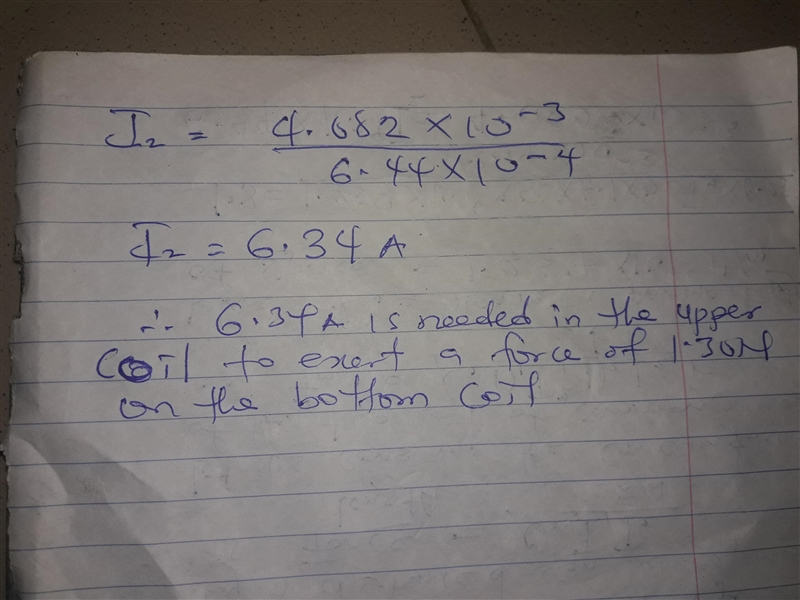 I₂ = 4.082 × 10⁻³
6.44 × 10⁻⁴
I₂ = 6.34 A
∴ 6.34A is needed in the upper
coil to exert a force of 1.30N
on the bottom coil